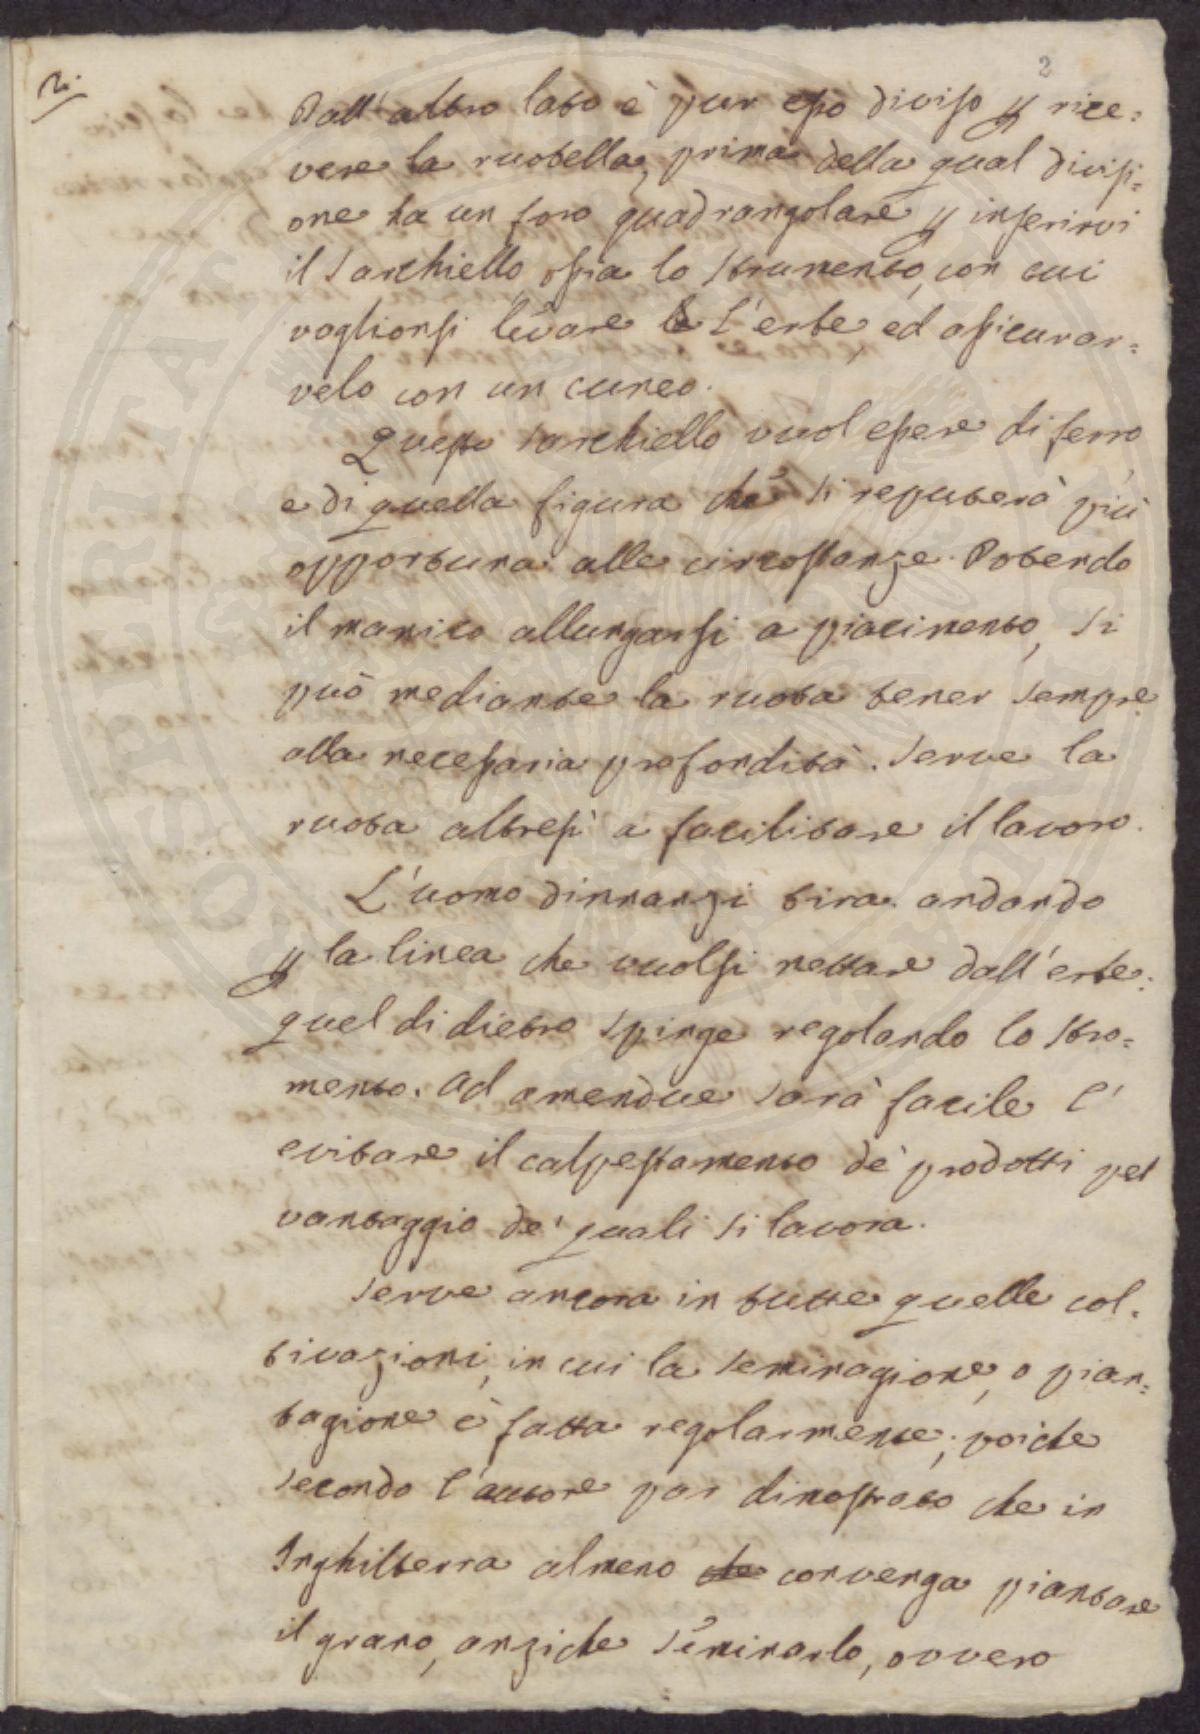 2.
2
Dall'altro lato è pur esso diviso p rice=
vere la ruotella, prima della qual divisi=
one ha un foro quadrangolare p inserirvi
il sarchiello, ossia lo strumento, con cui
voglionsi levare l'erbe, ed assicurar=
velo con un cuneo.
Questo sarchiello vuol essere di ferro
e di quella figura che si reputerà più
opportuna alle circostanze. Potendo
il manico allungarsi a piacimento, si
può mediante la ruota tener sempre
alla necessaria profondità. Serve la
ruota altresì a facilitare il lavoro.
L'uomo dinnanzi tira andando
p la linea che vuolsi nettare dall'erbe:
quel di dietro spinge regolando lo stro=
mento. Ad amendue sarà facile l'
evitare il calpestamento de' prodotti pel
vantaggio de' quali si lavora.
Serve ancora in tutte quelle col=
tivazioni, in cui la seminagione, o pian=
tagione è fatta regolarmente; poiche
secondo l'autore par dimostrato che in
Inghilterra almeno che convenga piantare
il grano, anziche seminarlo, ovvero
HOSPITALITAS